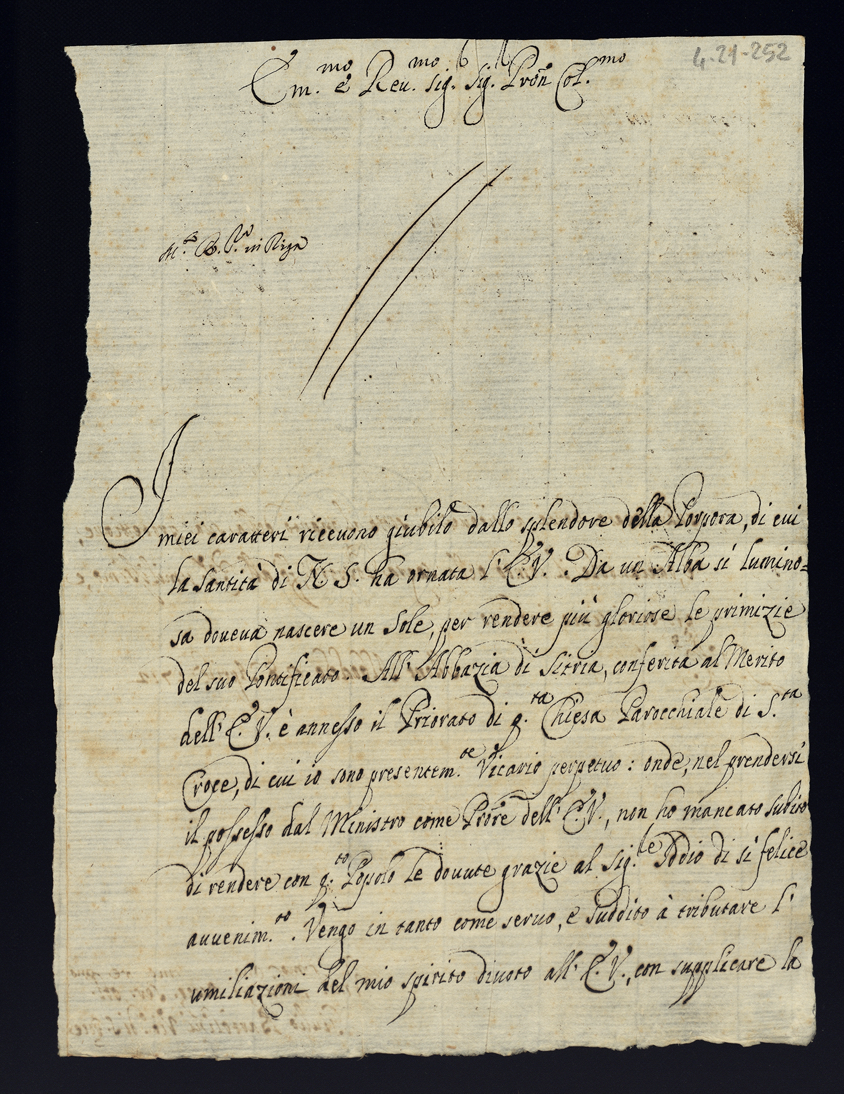 4-21-252
Em.mo e Reu.mo Sig. Sig. Pron Col.mo
in
I miei caratteri riceuono giubilo dallo splendore della Porpora, di cui
la Santità di N. S. ha ornata l'E. V. Da un Alba sì lumino=
sa doueua nascere un Sole, per rendere più gloriose le primizie
del suo Pontificato. All' Abbazia di Sitria, conferita al Merito
dell' E. V. è annesso il Priorato di q.ta Chiesa Parocchiale di S.ta
Croce, di cui io sono presentem.te Vicario perpetuo: onde, nel prendersi
il possesso dal Ministro come Prore dell' E. V., non ho mancato subito
di rendere con q.to Popolo le douute grazie al Sig.le Iddio di sì felice
auuenim.to. Vengo in tanto come seruo, e suddito à tributare l'
umiliazioni del mio spirito diuoto all' E. V., con supplicare la